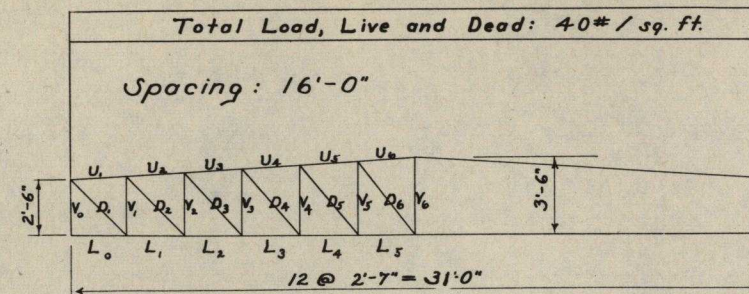 Total Load, Live and Dead: 40# / sq. ft.
Spacing: 16'-0"
U₁ U₂ U₃ U₄ U₅ U₆
2'-6" V₀ D₁ V₁ D₂ V₂ D₃ V₃ D₄ V₄ D₅ V₅ D₆ V₆ 3'-6"
L₀ L₁ L₂ L₃ L₄ L₅
12 @ 2'-7" = 31'-0"